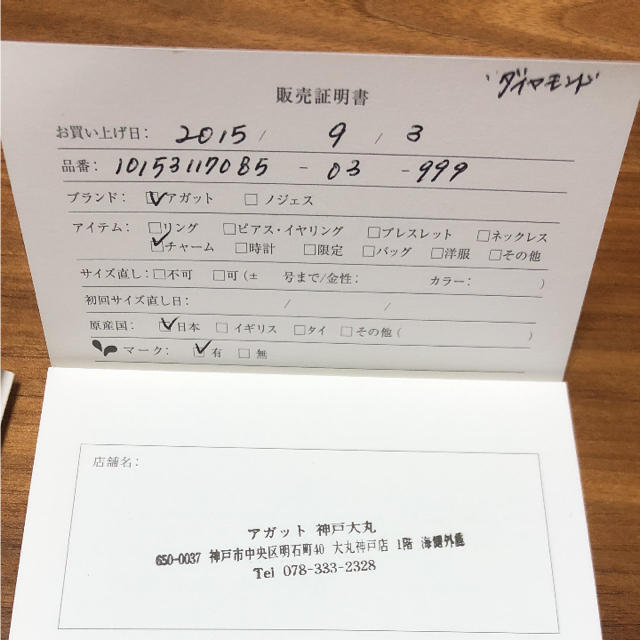 "ダイヤモンド"
販売証明書
お買い上げ日: 2015 / 9 / 3
品番: 10153117085 - 03 - 999
ブランド: ☑アガット □ ノジェス
アイテム: □リング □ピアス・イヤリング □ブレスレット □ネックレス
☑チャーム □時計 □限定 □バッグ □洋服 □その他
サイズ直し: □不可 □可 (± 号まで/金性: カラー: )
初回サイズ直し日: / /
原産国: ☑日本 □イギリス □タイ □その他 ( )
マーク: ☑有 □無
店舗名:
アガット 神戸大丸
650-0037 神戸市中央区明石町40 大丸神戸店 1階 海側外
Tel 078-333-2328